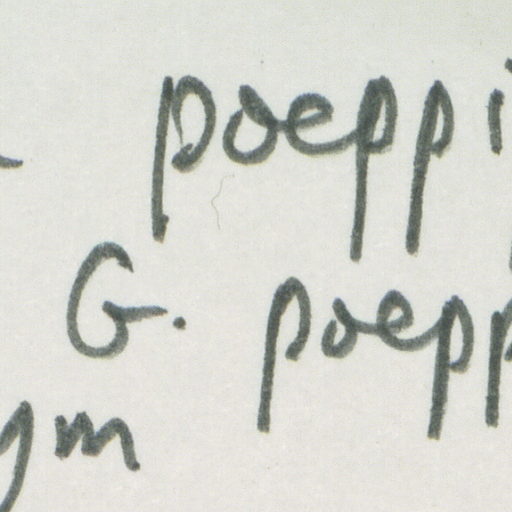 poeppi
G. poepp
ym